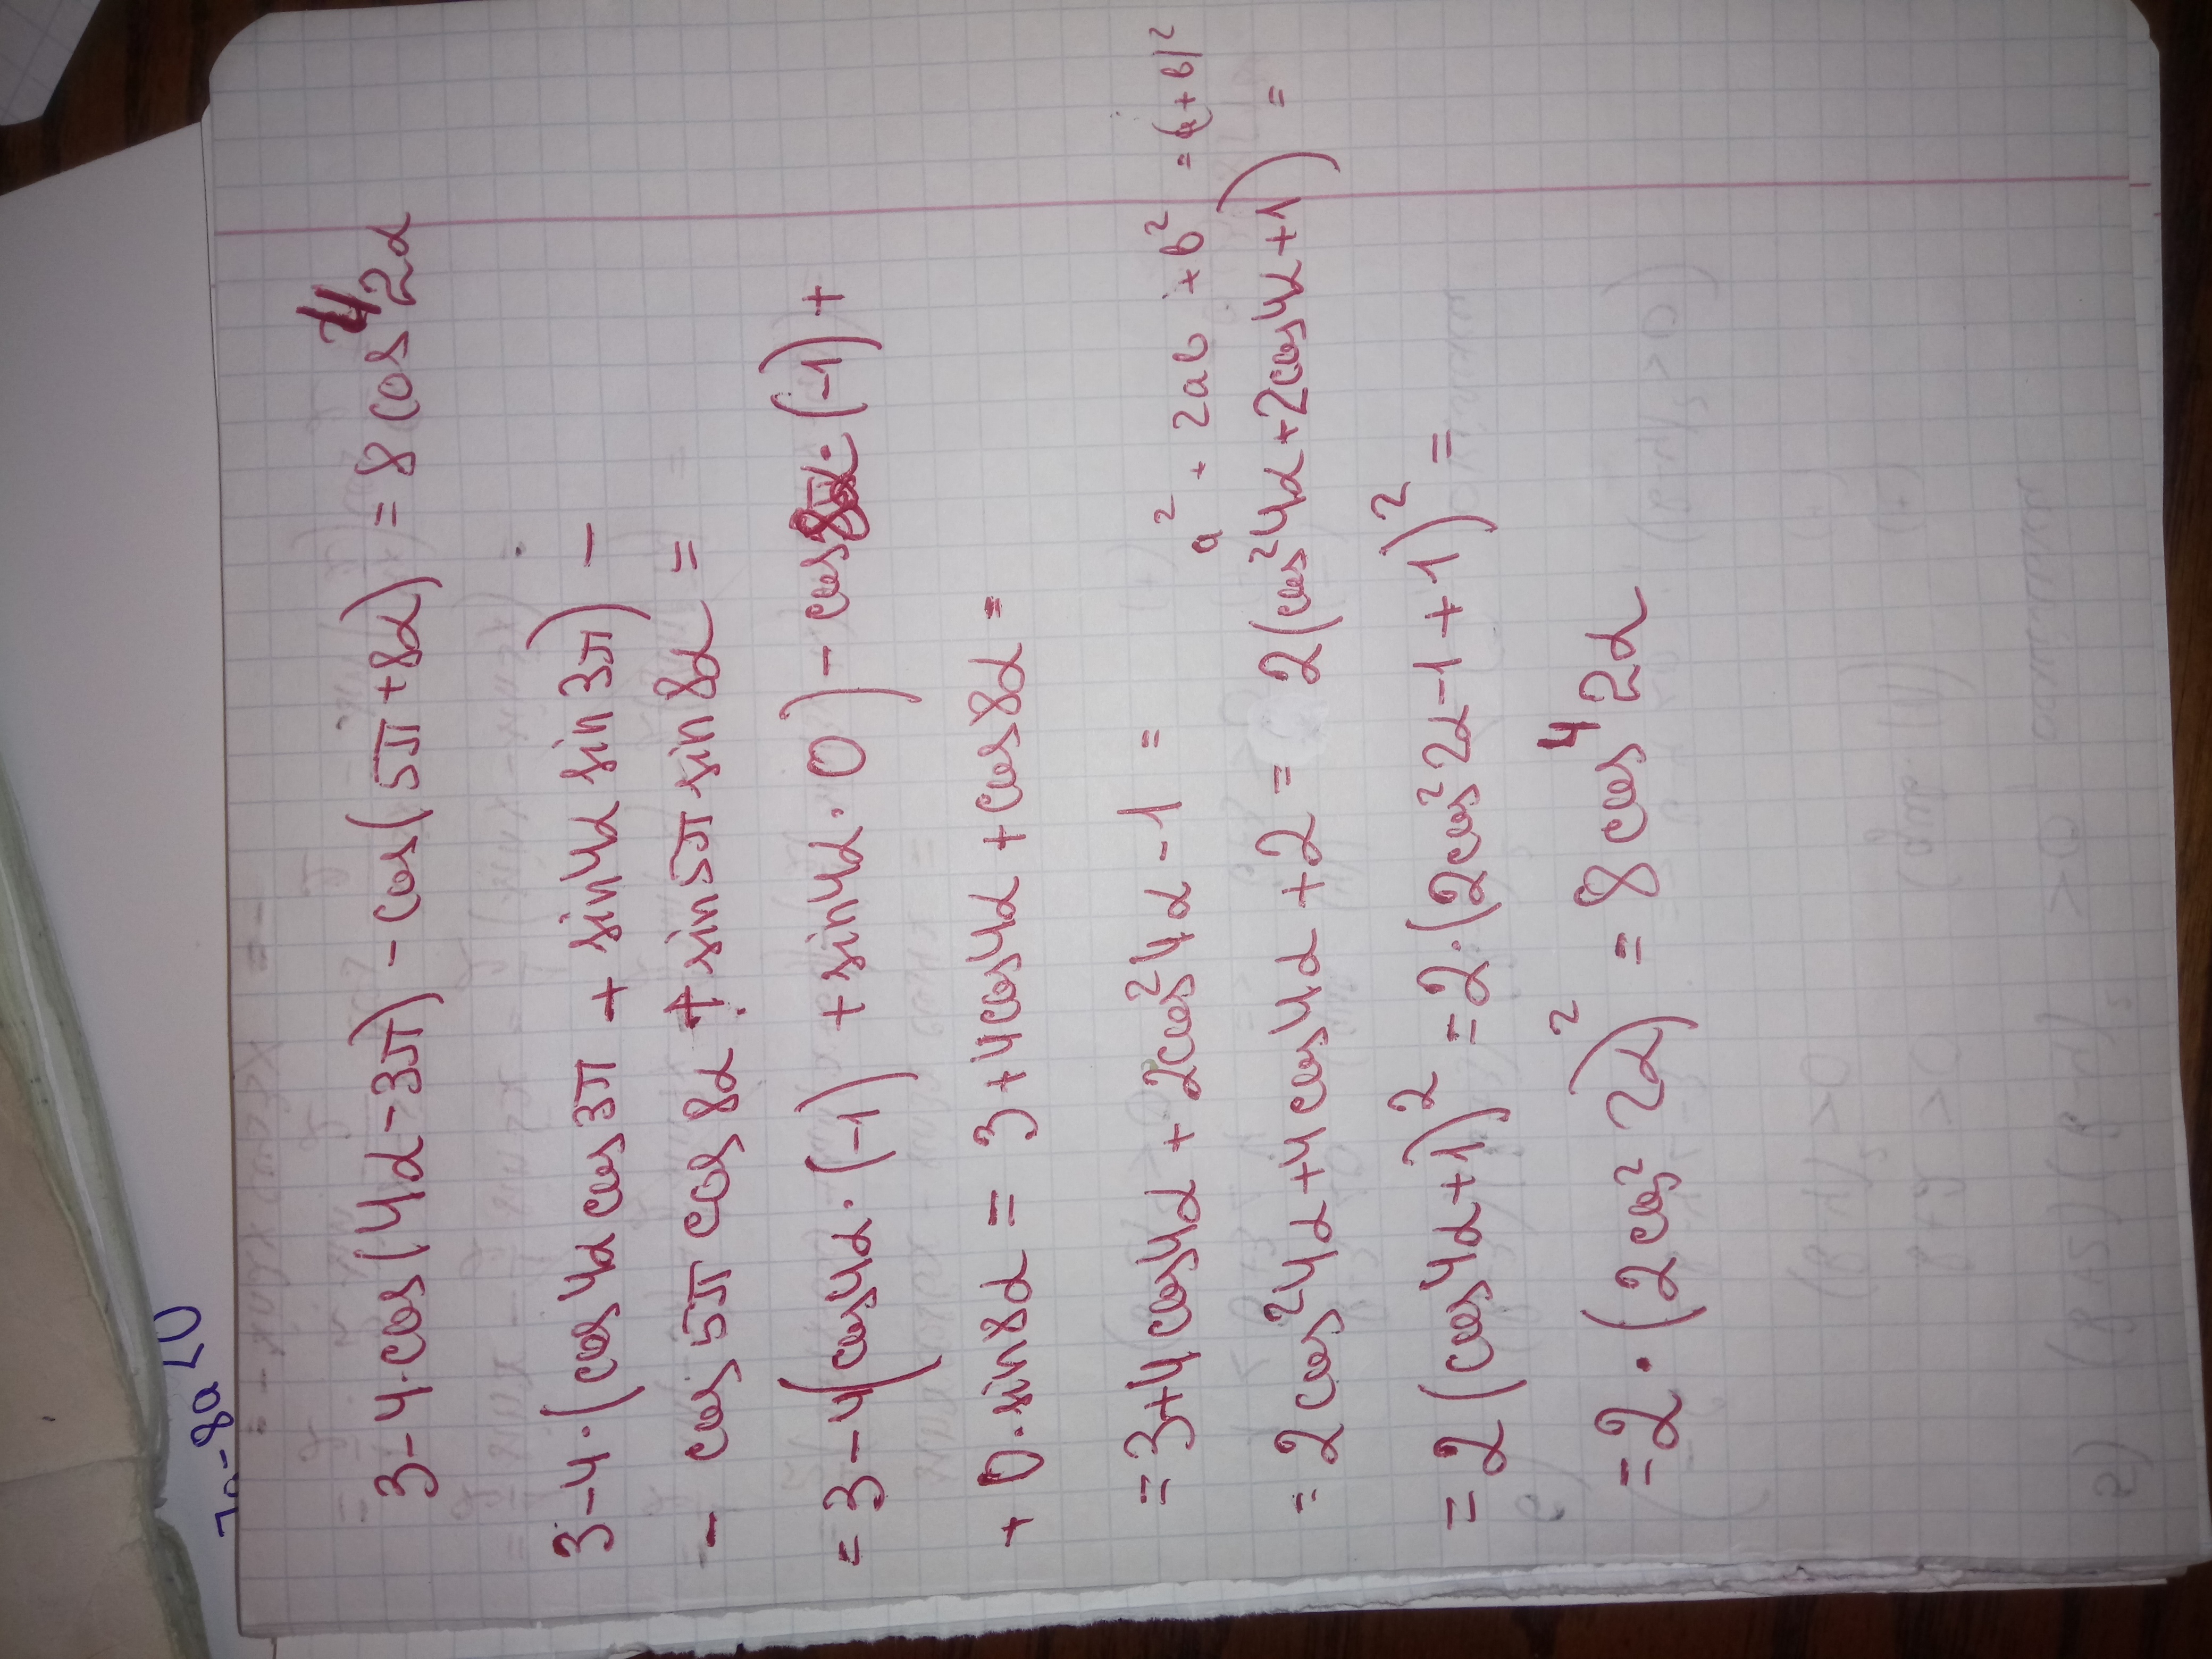 3-4·cos(4α-3π)-cos(5π+8α)=8cos⁴2α
3-4·(cos4αcos3π + sin4α sin3π) -
- cos5π cos8α + sin5π sin8α =
=3-4(cos4α·(-1) + sin4α·0) - cos8α·(-1) +
+ 0·sin8α = 3+4cos4α + cos8α =
=3+4cos4α + 2cos²4α -1 =
a² + 2ab + b² = (a+b)²
= 2cos²4α + 4cos4α + 2 = 2(cos²4α+2cos4α+1) =
= 2(cos4α+1)² = 2·(2cos²2α-1+1)² =
=2·(2cos²2α)² = 8cos⁴2α